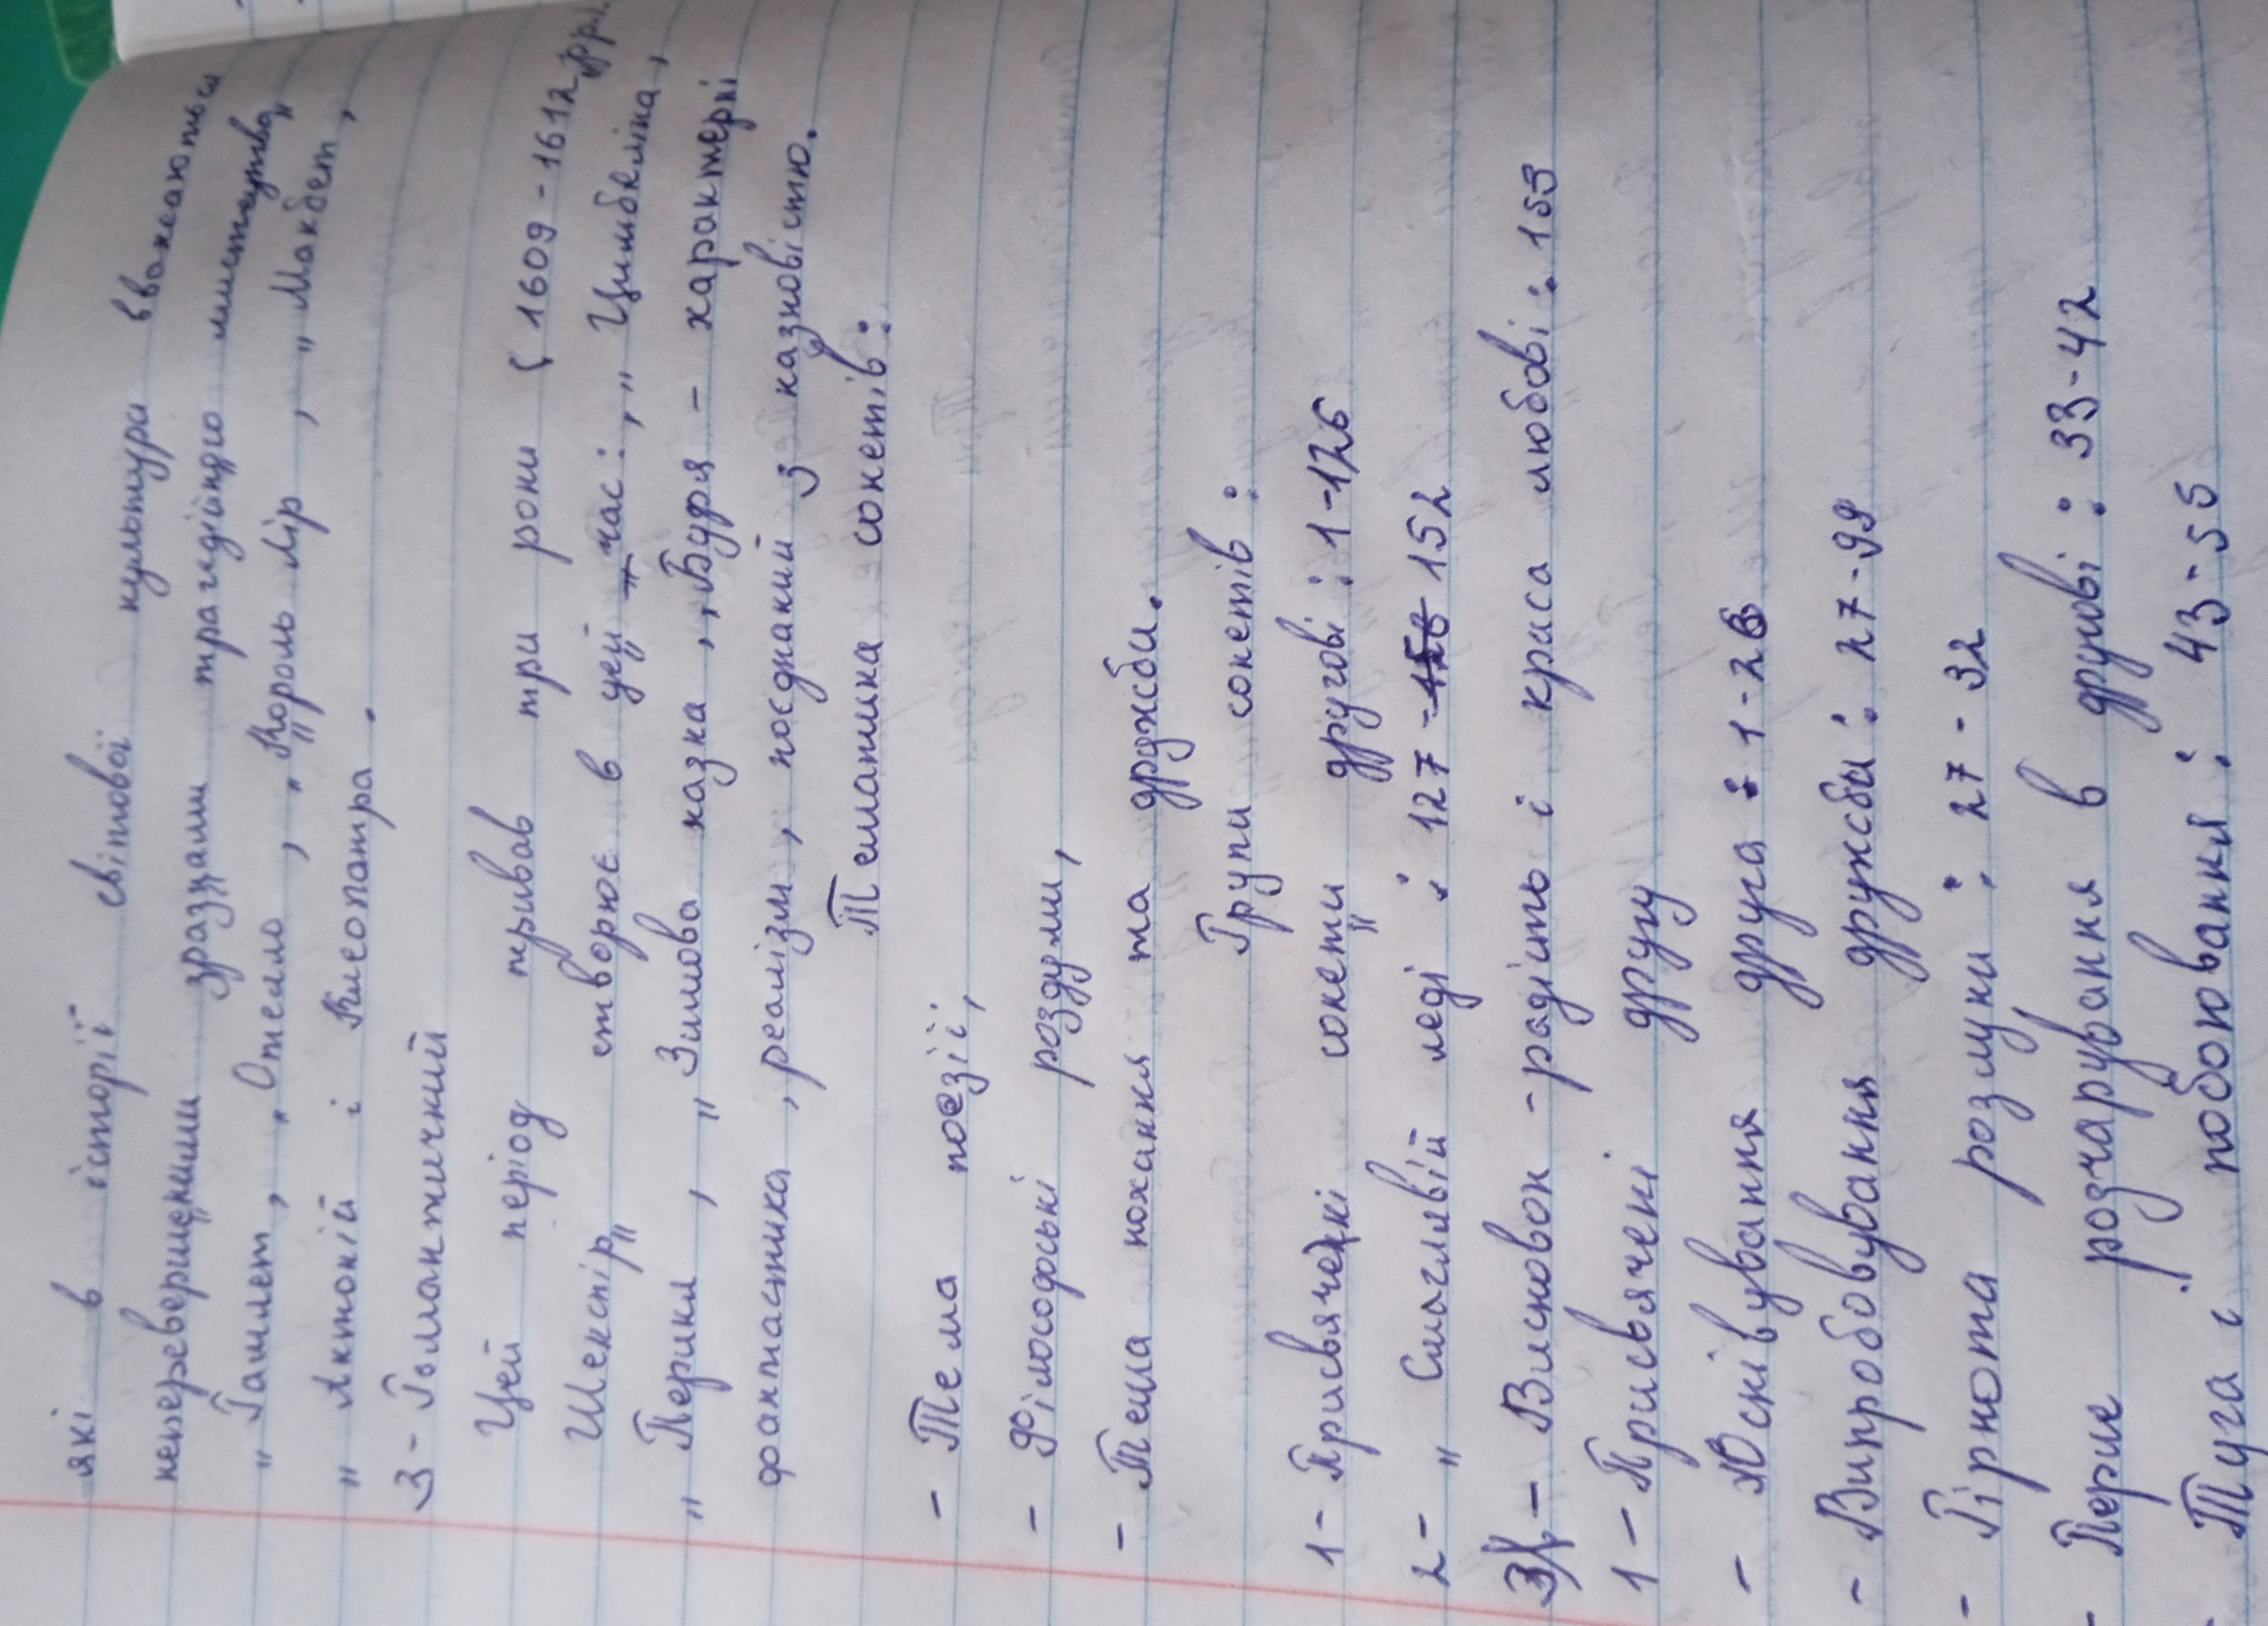 які в історії світової культури вважаються
неперевершеними зразками трагедійного мистецтва„
„Гамлет„, „Отелло„, „Король Лір„, „Макбет„,
„Антоній і Клеопатра„.
3 - Романтичний
Цей період тривав три роки (1609-1612 рр).
Шекспір„ створює в цей„ час: „Цимбеліна„,
„Перикл„, „Зимова казка„, „Буря - характерні
фантастика, реалізм, поєднаний з казковістю.
Тематика сонетів:
- Тема поезії,
- Філософські роздуми,
- Тема кохання та дружби.
Групи сонетів:
1- Присвячені сонети другові: 1-126
2- „Смаглявій леді: 127 -128 152
3 - Висновок - радість і краса любові: 153
1 - Присвячені другу
- Оспівування друга: 1-26
- Випробовування дружби: 27-99
- Гіркота розлуки: 27-32
- Перше розчарування в другові: 33-42
- Туга і побоювання: 43-55